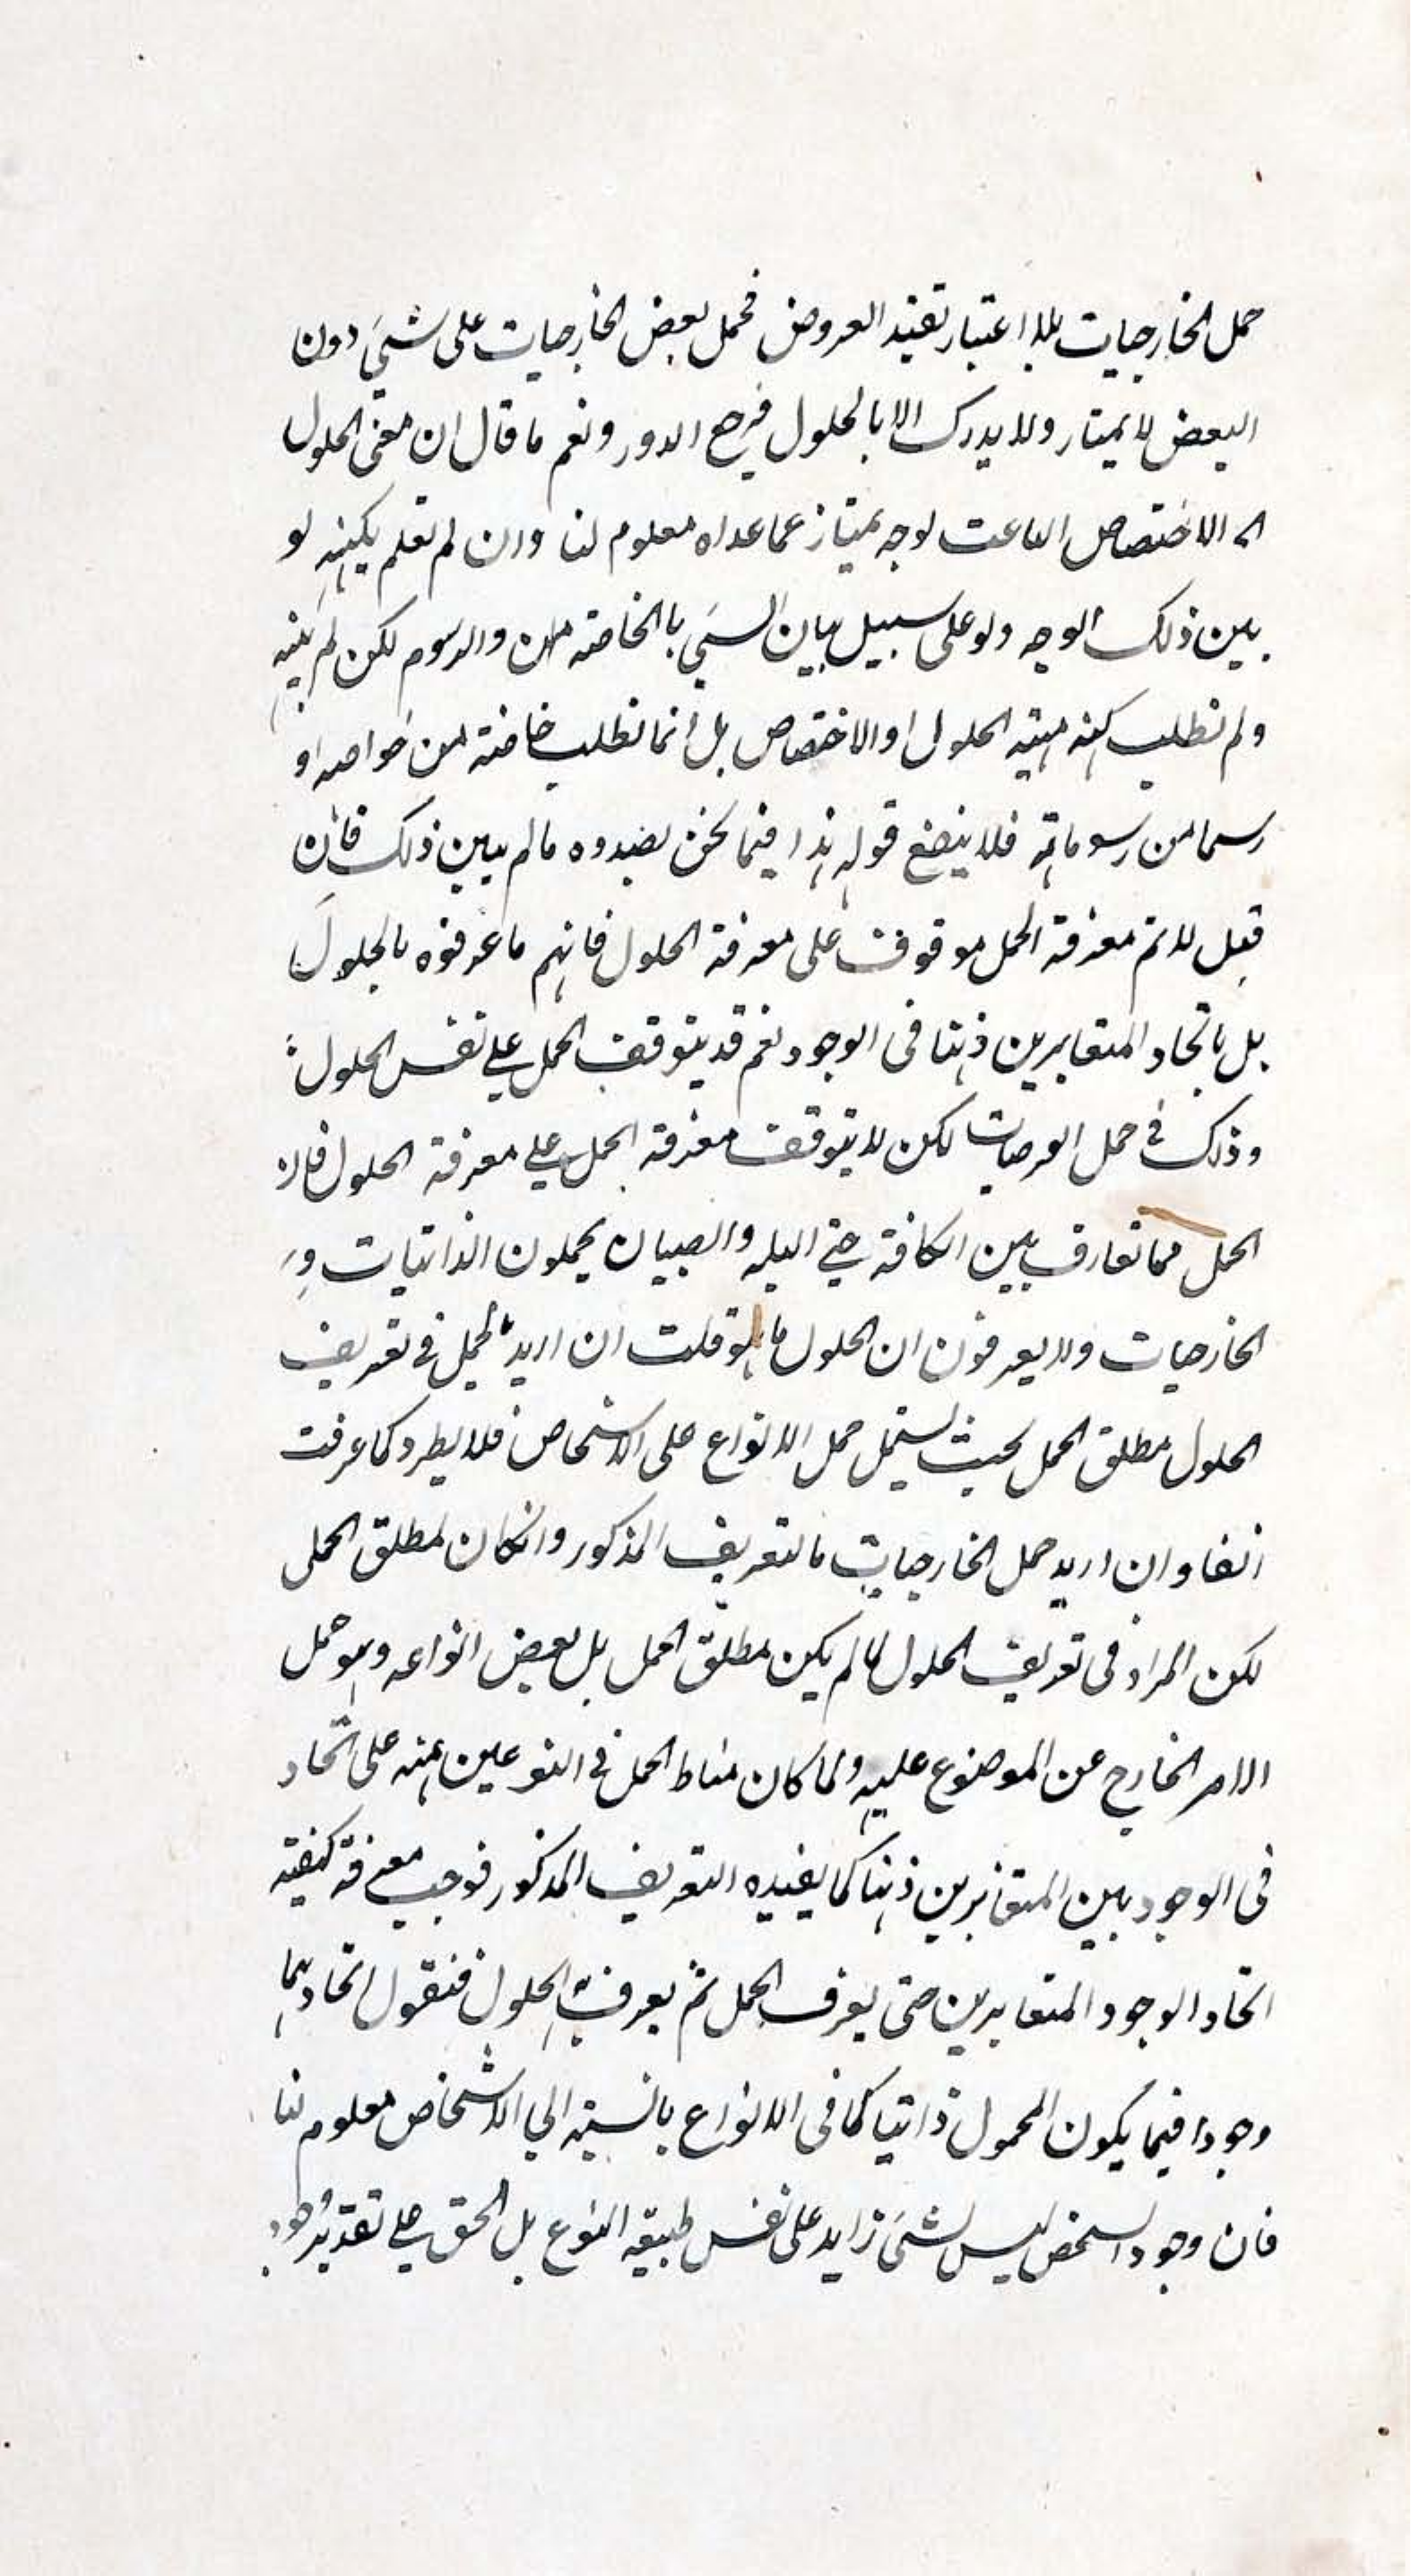 حمل الخارجيات بلا اعتبار تقيد العروض فحمل بعض الخارجيات على شيء دون
البعض لا يمتاز ولا يدرك الا بالحلول فيرجع الدور ونعم ما قال ان معنى الحلول
الاختصاص الناعت بوجه يمتاز عما عداه معلوم لنا وان لم نعلم بكنهه لو
بين ذلك الوجه ولو على سبيل بيان الشيء بالخاصة من والرسوم لكن لم يبينه
ولم نطلب كنه مهية الحلول او الاختصاص بل انما نطلب خاصته من خواصه او
رسما من رسوماته فلا ينفع قوله هذا فيما نحن بصدده ما لم يبين ذلك فان
قيل لا نم معرفة الحمل موقوف على معرفة الحلول فانهم ما عرفوه بالحلول
بل باتحاد المتغايرين ذهنا فى الوجود نعم قد يتوقف الحمل على نفس الحلول
وذلك في حمل العرضيات لكن لا يتوقف معرفة الحمل على معرفة الحلول فان
الحمل مما تعارف بين الكافة حتى البله والصبيان يحملون الذاتيات و
الخارجيات ولا يعرفون ان الحلول ما هو قلت ان اريد بالحمل في تعريف
الحلول مطلق الحمل بحيث يشمل حمل الانواع على الاشخاص فلا يطرد كما عرفت
انفا وان اريد حمل الخارجيات فالتعريف المذكور وان كان لمطلق الحمل
لكن المراد فى تعريف الحلول لما لم يكن مطلق الحمل بل بعض انواعه وهو حمل
الامر الخارج عن الموضوع عليه ولما كان مناط الحمل في النوعين منه على اتحاد
فى الوجود بين المتغايرين ذهنا كما يفيده التعريف المذكور فوجب معرفة كيفية
اتحاد الوجود المتغايرين حتى يعرف الحمل ثم يعرف به الحلول فنقول اتحادهما
وجودا فيما يكون المحمول ذاتيا كما فى الانواع بالنسبة الي الاشخاص معلوم لنا
فان وجود الشخص ليس بشيء زايد على نفس طبيعة النوع بل الحق على تقدير وجود